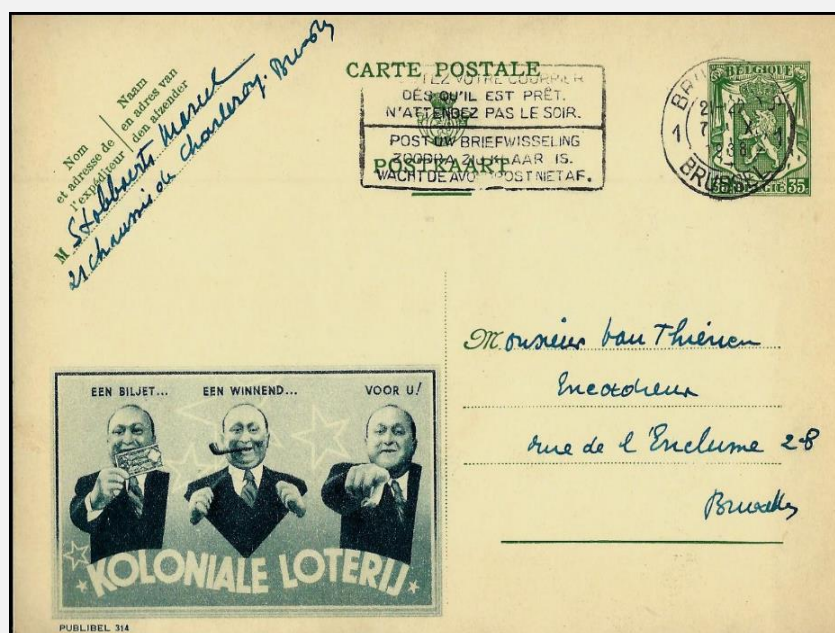 Nom
et adresse de
l'expéditeur
Naam
en adres van
den afzender
M Stobbaerts Marcel
21 chaussée de Charleroy. Bruxelles
CARTE POSTALE
POSTKAART
TEZ VOTRE COURRIER
DÈS QU'IL EST PRÊT.
N'ATTENDEZ PAS LE SOIR.
POST UW BRIEFWISSELING
ZOODRA ZIJ KLAAR IS.
WACHT DE AVONDPOST NIET AF.
BELGIQUE
BELGIË
35 35
1 1
1938
BRUSSEL
Monsieur Van Thienen
Encadreur
rue de l'Enclume 28
Bruxelles
EEN BILJET... EEN WINNEND... VOOR U!
KOLONIALE LOTERIJ
PUBLIBEL 314